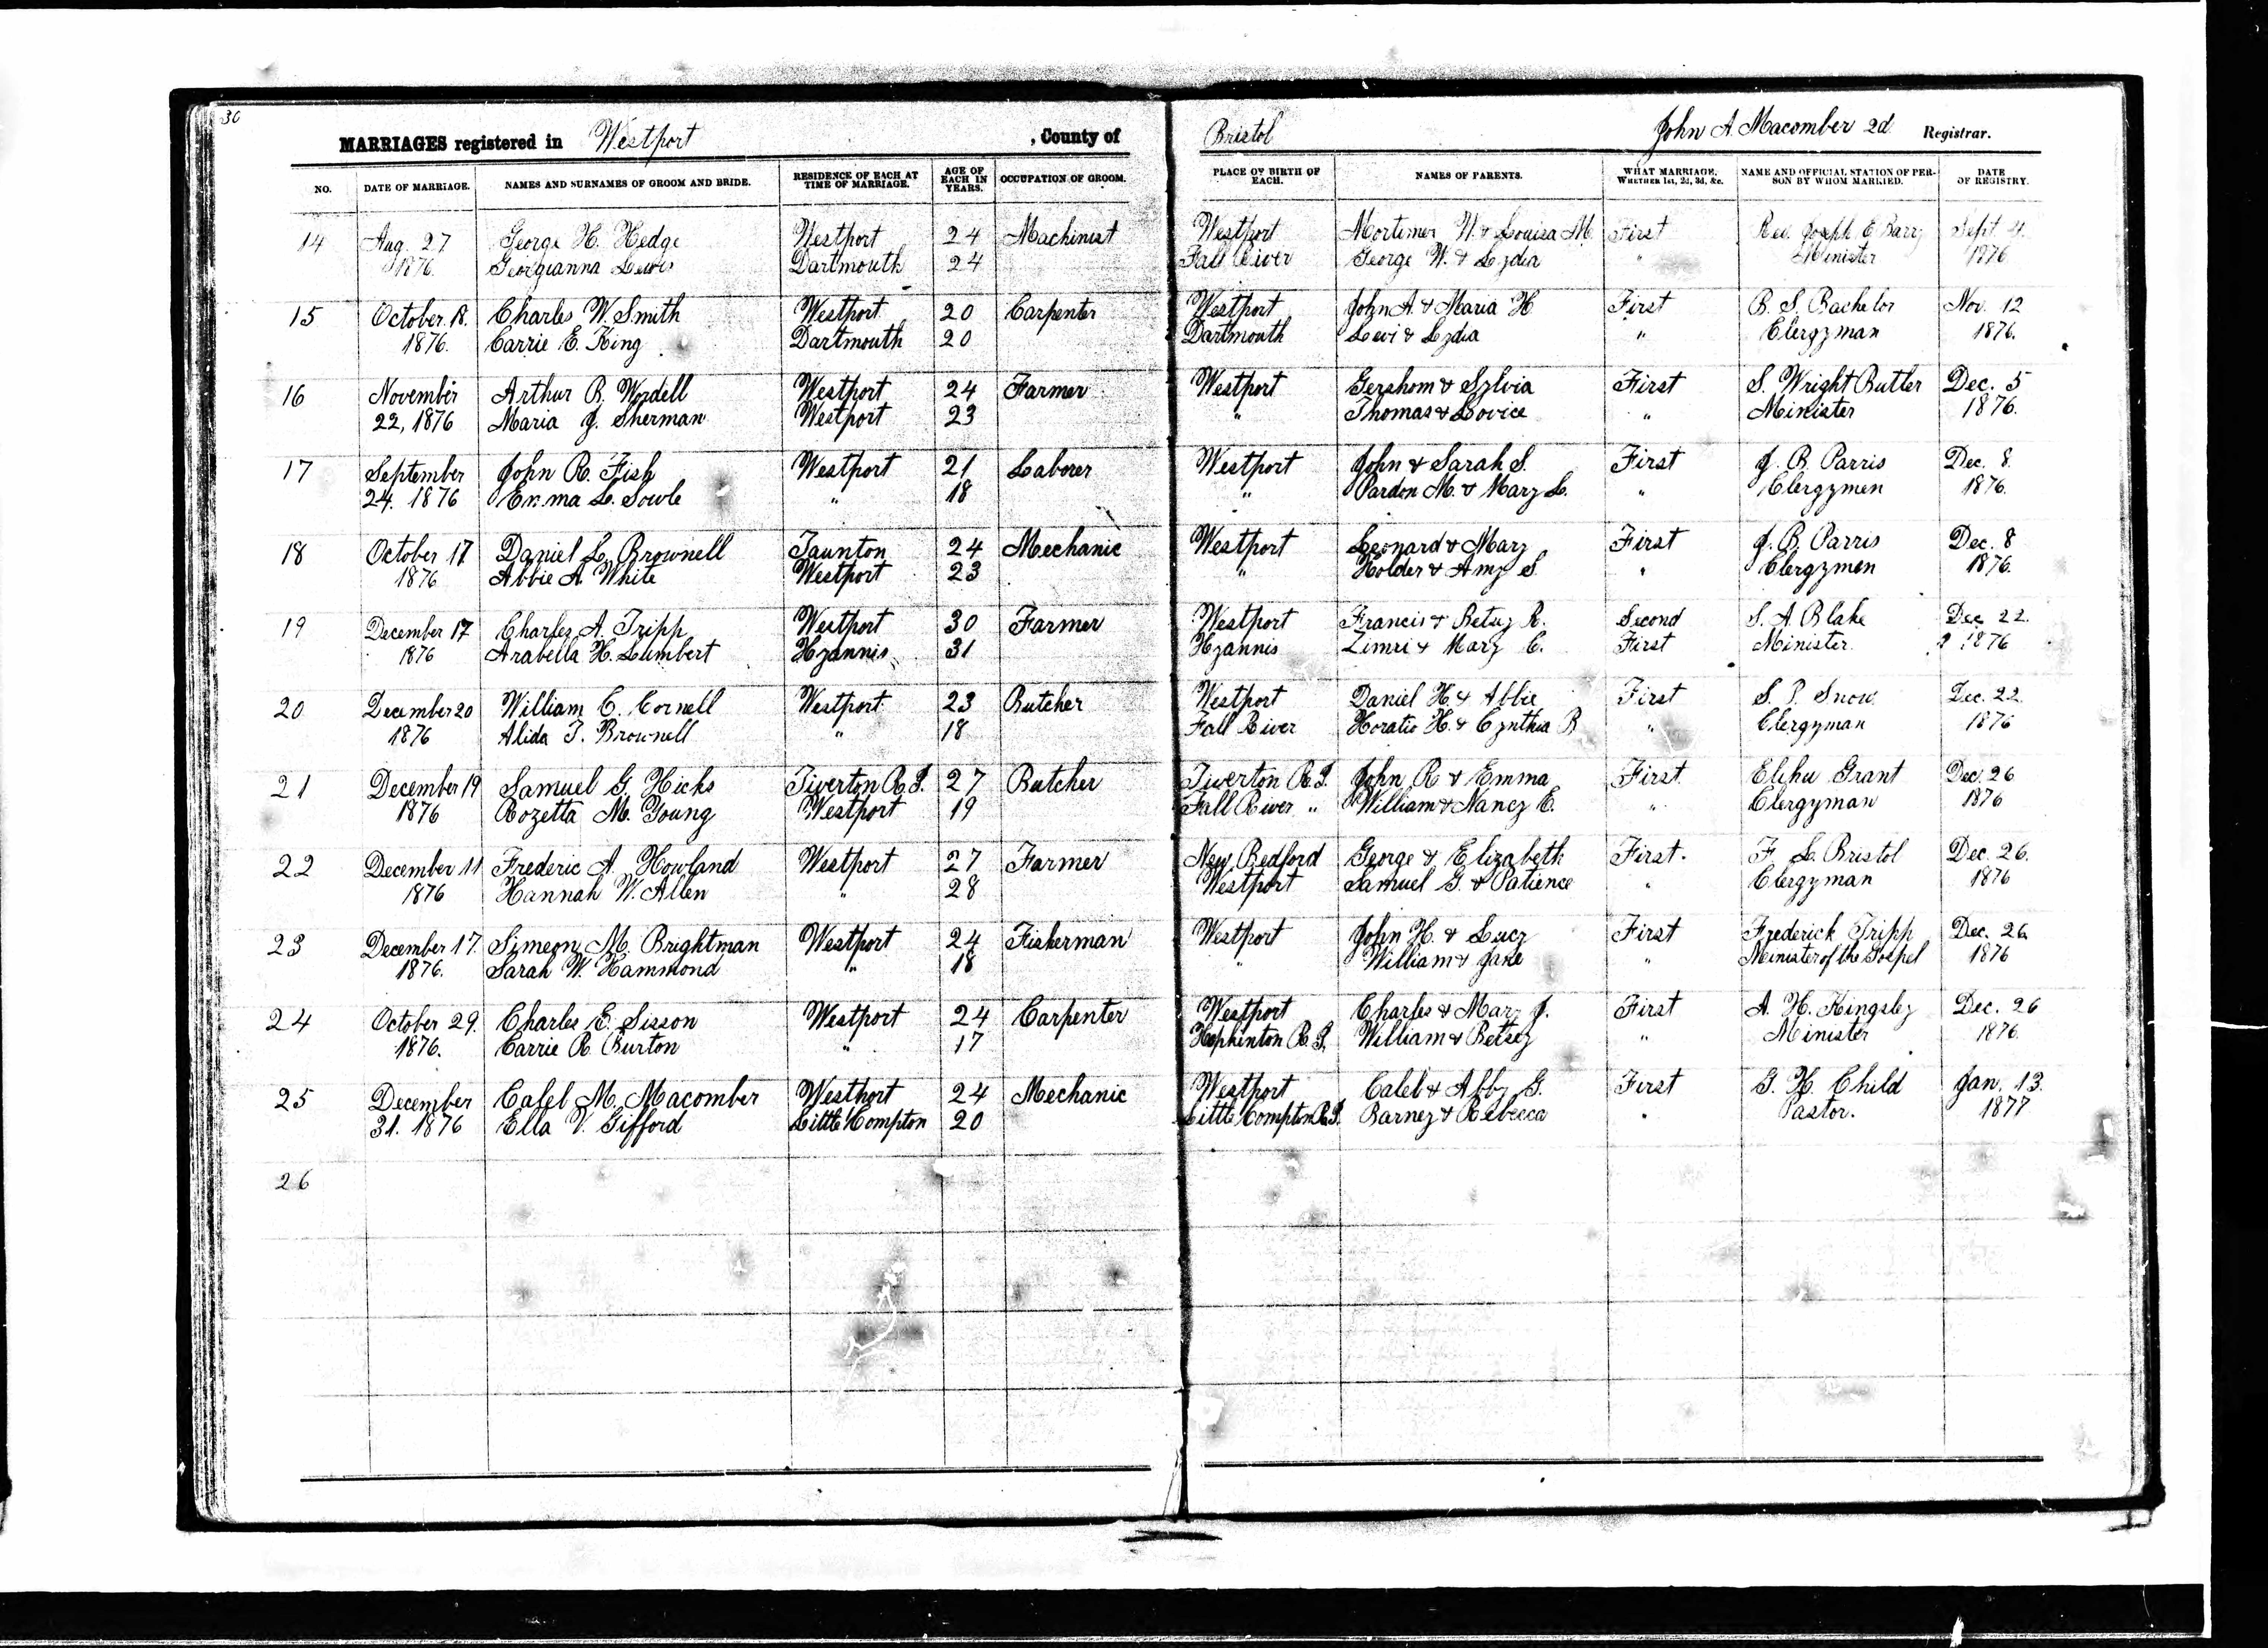 36
MARRIAGES registered in Westport , County of Bristol John A. Macomber 2d Registrar.
NO. DATE OF MARRIAGE. NAMES AND SURNAMES OF GROOM AND BRIDE. RESIDENCE OF EACH AT TIME OF MARRIAGE. AGE OF EACH IN YEARS. OCCUPATION OF GROOM. PLACE OF BIRTH OF EACH. NAMES OF PARENTS. WHAT MARRIAGE, WHETHER 1st, 2d, 3d, &c. NAME AND OFFICIAL STATION OF PERSON BY WHOM MARRIED. DATE OF REGISTRY.
14 Aug. 27 George H. Hedge Westport 24 Machinist Westport Mortimer W. & Louisa M. First Rev. Joseph E Barry Sept. 4.
1876. Georgianna Lewis Dartmouth 24 Fall River George W. & Lydia " Minister 1876
15 October 18. Charles W. Smith Westport 20 Carpenter Westport John A. & Maria H First B. S. Bachelor Nov. 12
1876. Carrie E. King Dartmouth 20 Dartmouth Levi & Lydia " Clergyman 1876.
16 November Arthur B. Wordell Westport 24 Farmer Westport Gershom & Sylvia First S. Wright Butler Dec. 5
22, 1876 Maria J. Sherman Westport 23 " Thomas & Lovice " Minister 1876.
17 September John R. Fish Westport 21 Laborer Westport John & Sarah S. First J. B. Parris Dec. 8.
24. 1876 Emma L. Sowle " 18 " Pardon M. & Mary L. " Clergymen 1876.
18 October 17 Daniel L. Brownell Taunton 24 Mechanic Westport Leonard & Mary First J. B. Parris Dec. 8
1876 Abbie A. White Westport 23 " Holder & Amy S. " Clergymen 1876.
19 December 17 Charles A. Tripp Westport 30 Farmer Westport Francis & Betsy R. Second S. A. Blake Dec 22.
1876 Arabella H. Lumbert Hyannis 31 Hyannis Zimri & Mary C. First Minister 1876
20 December 20 William C. Cornell Westport 23 Butcher Westport Daniel H. & Abbie First S. P. Snow Dec. 22
1876 Alida T. Brownell " 18 Fall River Horatio H. & Cynthia B " Clergyman 1876
21 December 19 Samuel G. Hicks Tiverton R.I. 27 Butcher Tiverton R.I. John R & Emma First. Elihu Grant Dec. 26
1876 Rozetta M. Young Westport 19 Fall River " William & Nancy E. " Clergyman 1876
22 December 11 Frederic A. Howland Westport 27 Farmer New Bedford George & Elizabeth First. F. L. Bristol Dec. 26.
1876 Hannah W. Allen " 28 Westport Samuel G. & Patience " Clergyman 1876
23 December 17. Simeon M. Brightman Westport 24 Fisherman Westport John H. & Lucy First Frederick Tripp Dec. 26
1876. Sarah W. Hammond " 18 " William & Jane " Minister of the Gospel 1876
24 October 29. Charles E. Sisson Westport 24 Carpenter Westport Charles & Mary J. First A. H. Kingsley Dec. 26
1876. Carrie R. Burton " 17 Hopkinton R.I. William & Betsey " Minister 1876.
25 December Calel M. Macomber Westport 24 Mechanic Westport Caleb & Abby G. First G. H. Child Jan. 13.
31. 1876 Ella V. Gifford Little Compton 20 Little Compton R.I. Barney & Rebecca " Pastor. 1877
26